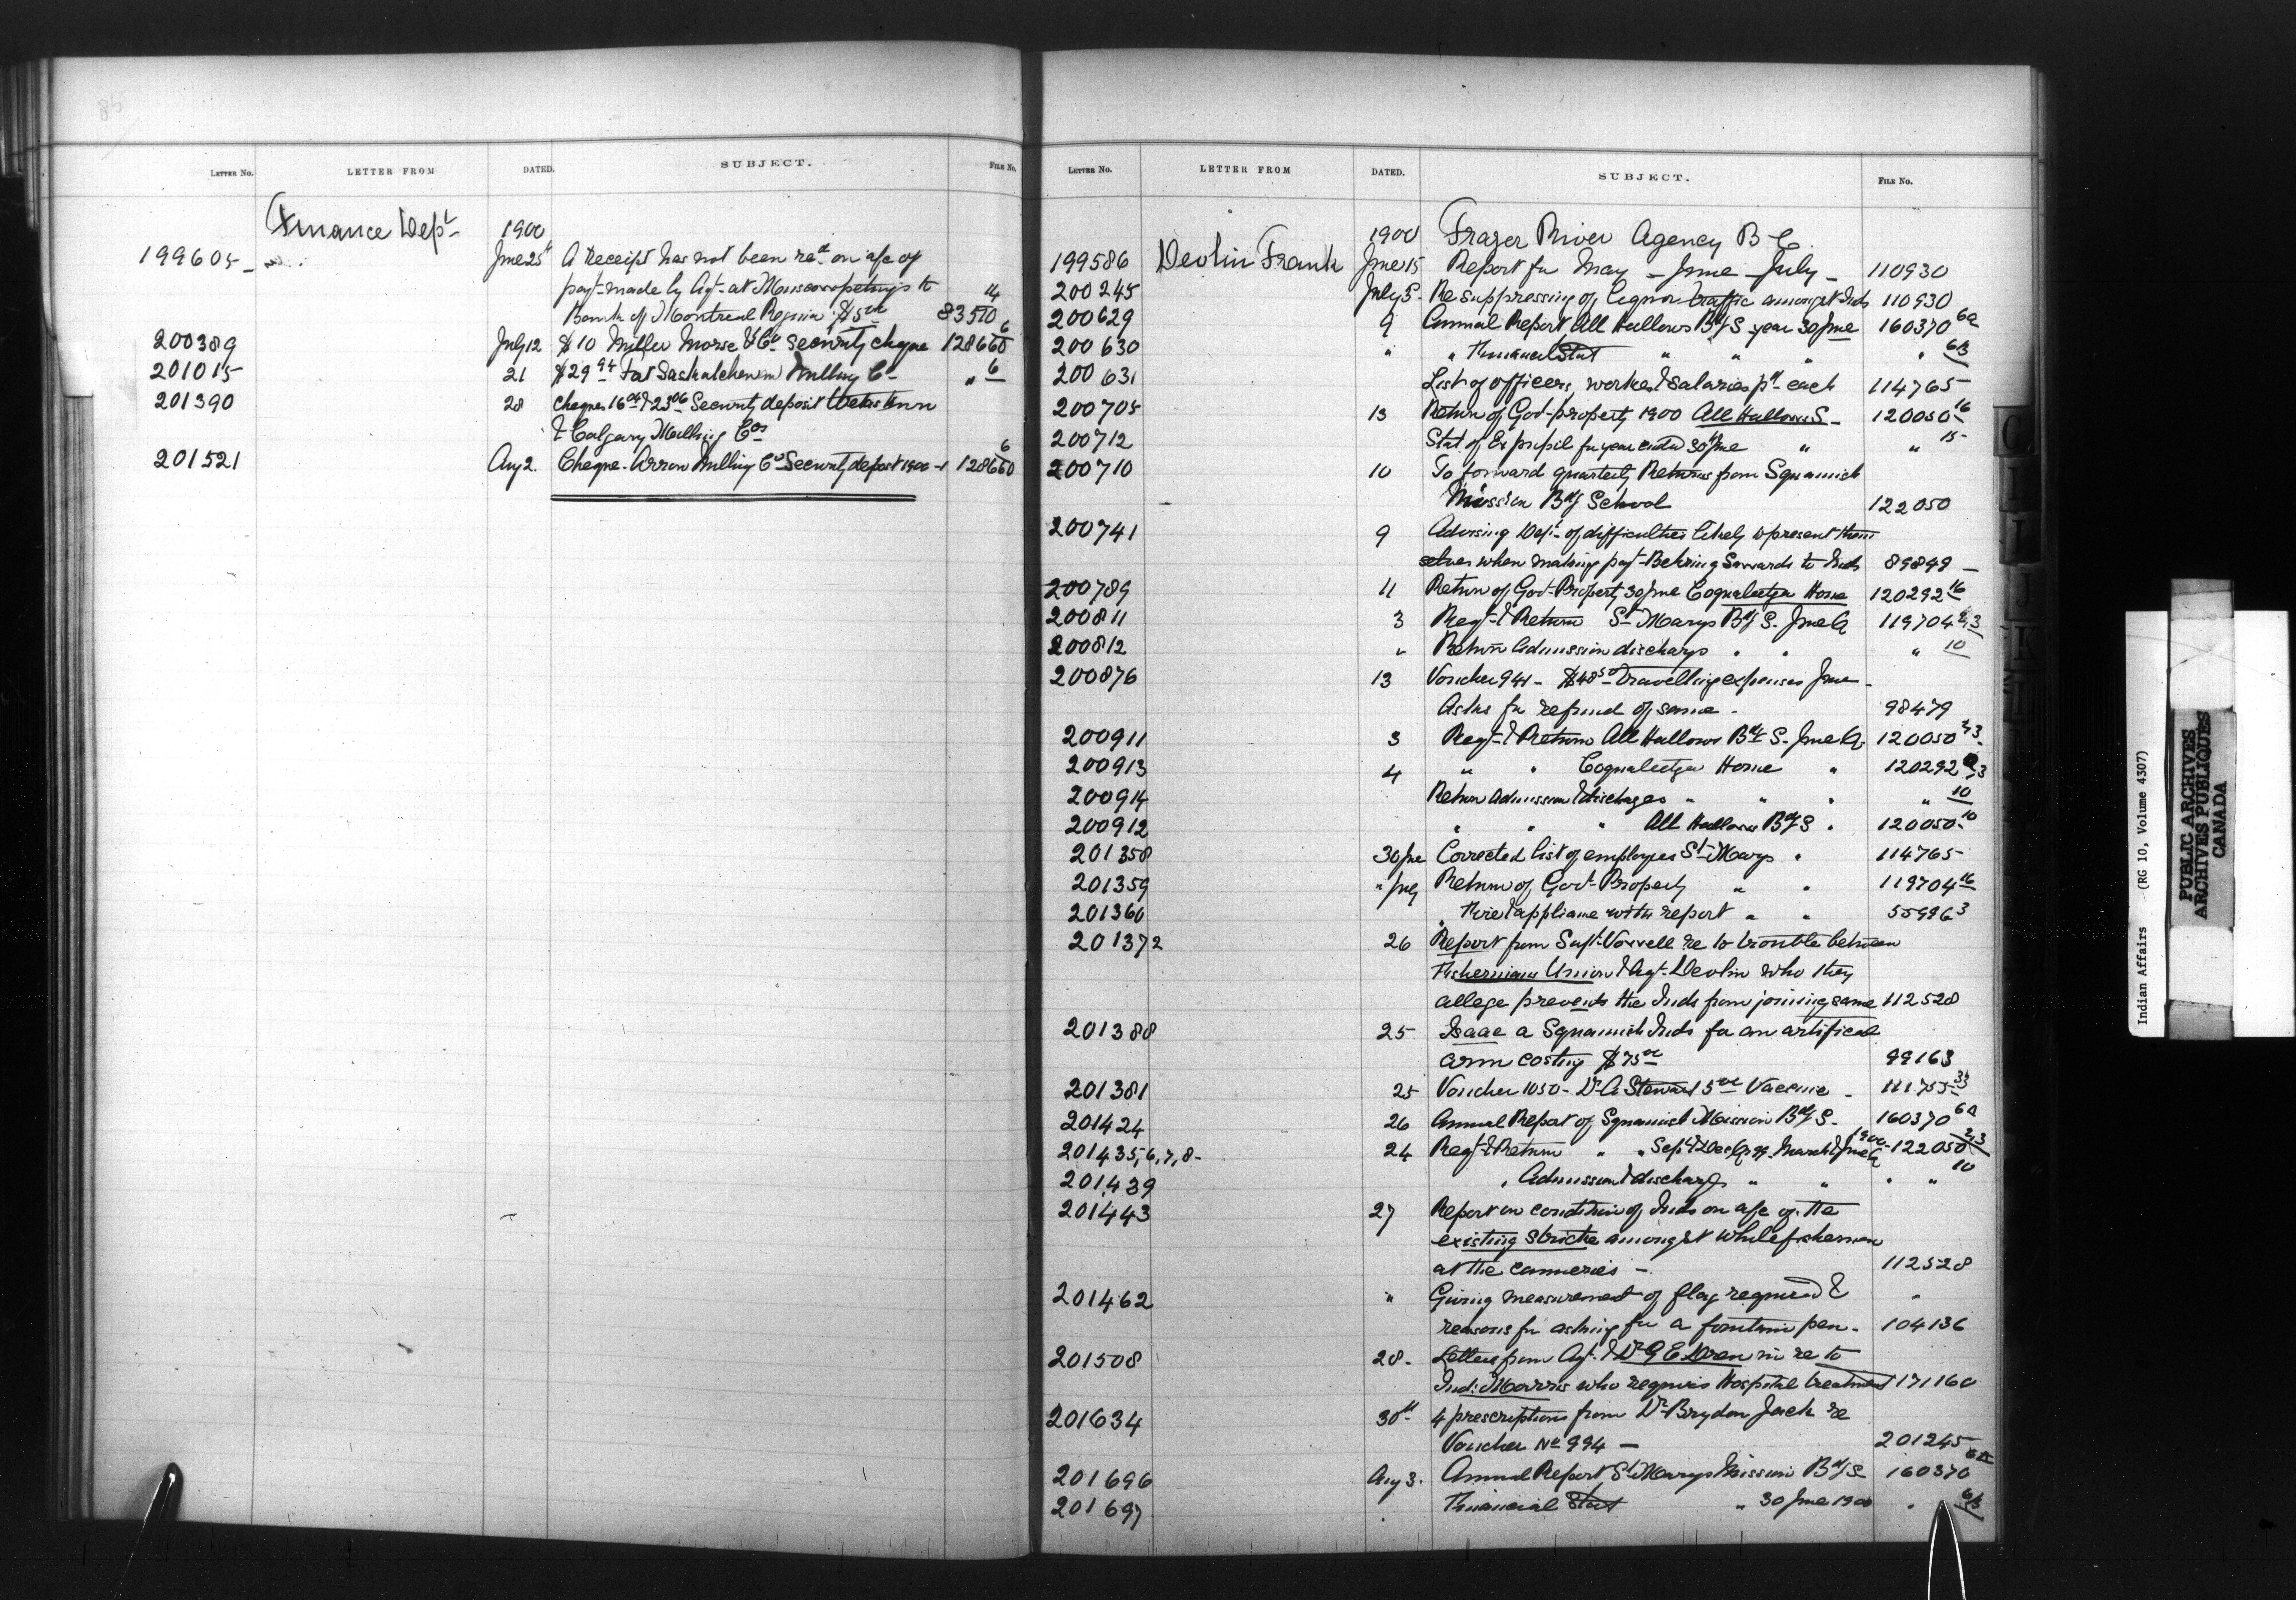 85
LETTER NO. LETTER FROM DATED. SUBJECT. FILE NO.
Finance Dept 1900
199605 June 25 A Receipt has not been recd on a/c of
payt made by Agt at Muscowpetungs to 14
Bank of Montreal Regina $5 00 83510
200389 July 12 $10 Miller Morse & Co security cheque 128660 6
201015 21 $29 94 Fort Saskatchewan Milling Co " 6
201390 28 Cheques 16 & 23 06 Security deposit Western
& Calgary Milling Cos
201521 Aug 2. Cheque Arrow Milling Co Security deposit 1900-1 128660 6
LETTER NO. LETTER FROM DATED. SUBJECT. FILE NO.
1900 Frazer River Agency B C.
199586 Devlin Frank June 15 Report for May - June - July - 110930
200245 July 5 Re suppressing of liquor traffic amongst Inds 110930
200629 9 Annual Report All Hallows Bdg S year 30 June 160370 6a
200630 " " Financial Stat " " " " 6B
200631 List of officers, works & salaries pd each 114765
200705 13 Return of Govt property 1900 All Hallows S 120050 16
200712 Stat of Ex pupil for year ended 30th June " " 15
200710 10 To forward quarterly Returns from Squamish
Mission Bdg School 122050
200741 9 Advising Dept of difficulties likely to present them
selves when making payt Behring S awards to Inds 89849 -
200789 11 Return of Govt Property 30 June Coqualeetza Home 120292 16
200811 3 Regt & Return St Marys Bdg S. June Q 119704 2,3
200812 " Return Admission discharge " " " 10
200876 13 Voucher 941 - $48 50 Travelling expenses June -
Asks for refund of same - 98479
200911 3 Regt & Return All Hallows Bdg S. June Q. 120050 2,3
200913 4 " " Coqualeetza Home " 120292 2,3
200914 Return Admission & discharges " " " " 10
200912 " " " All Hallows Bdg S " 120050 10
201358 30 June Corrected list of employes St Marys " 114765
201359 " July Return of Govt Property " " 119704 16
201360 " Fire & appliance with report " " 55996 3
201372 26 Report from Supt Vowell re to trouble between
Fishermans Union & Agt Devlin who they
allege prevents the Inds from joining same 112528
201388 25 Isaac a Squamish Inds for an artifical
arm costing $75 00 99163
201381 25 Voucher 1050 - Dr A Stewart 5 00 Vaccine - 111755 33
201424 26 Annual Report of Squamish Mission Bdg S. 160370 6a
201435,6,7,8- 24 Regt & Return " " Sept & Dec Q 99 March & June Q 1900 122050 2,3
201439 " Admission & discharge " " " " 10
201443 27 Report on condition of Inds on a/c of the
existing stricke amongst white fishermen
at the canneries - 112528
201462 " Giving measurement of flag required & "
reasons for asking for a fountain pen - 104136
201508 28 - Letters from Agt & Dr G E Dren in re to
Ind: Morris who requires Hospital treatment 171160
201634 30th 4 prescriptions from Dr Brydon Jack re
Voucher No 994 - 201245
201696 Aug 3. Annual Report St Marys Mission Bdg S 160370 6a
201697 " Financial Stat " 30 June 1900 " 6B
C
I
J
K
L
Indian Affairs (RG 10, Volume 4307)
PUBLIC ARCHIVES
ARCHIVES PUBLIQUES
CANADA